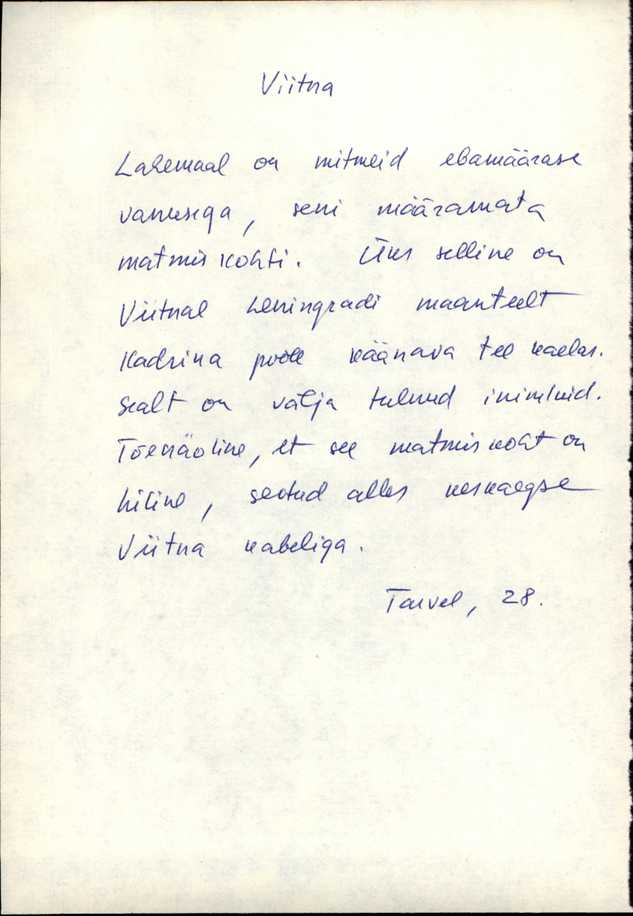 Viitna
Lahemaal on mitmeid ebamäärase
vanusega, seni määramata
matmiskohti. Üks selline on
Viitnal Leningradi maanteelt
Kadrina poole käänava tee kaelas.
Sealt on välja tulnud inimluid.
Tõenäoline, et see matmiskoht on
hiline, seotud alles keskaegse
Viitna kabeliga.
Tarvel, 28.